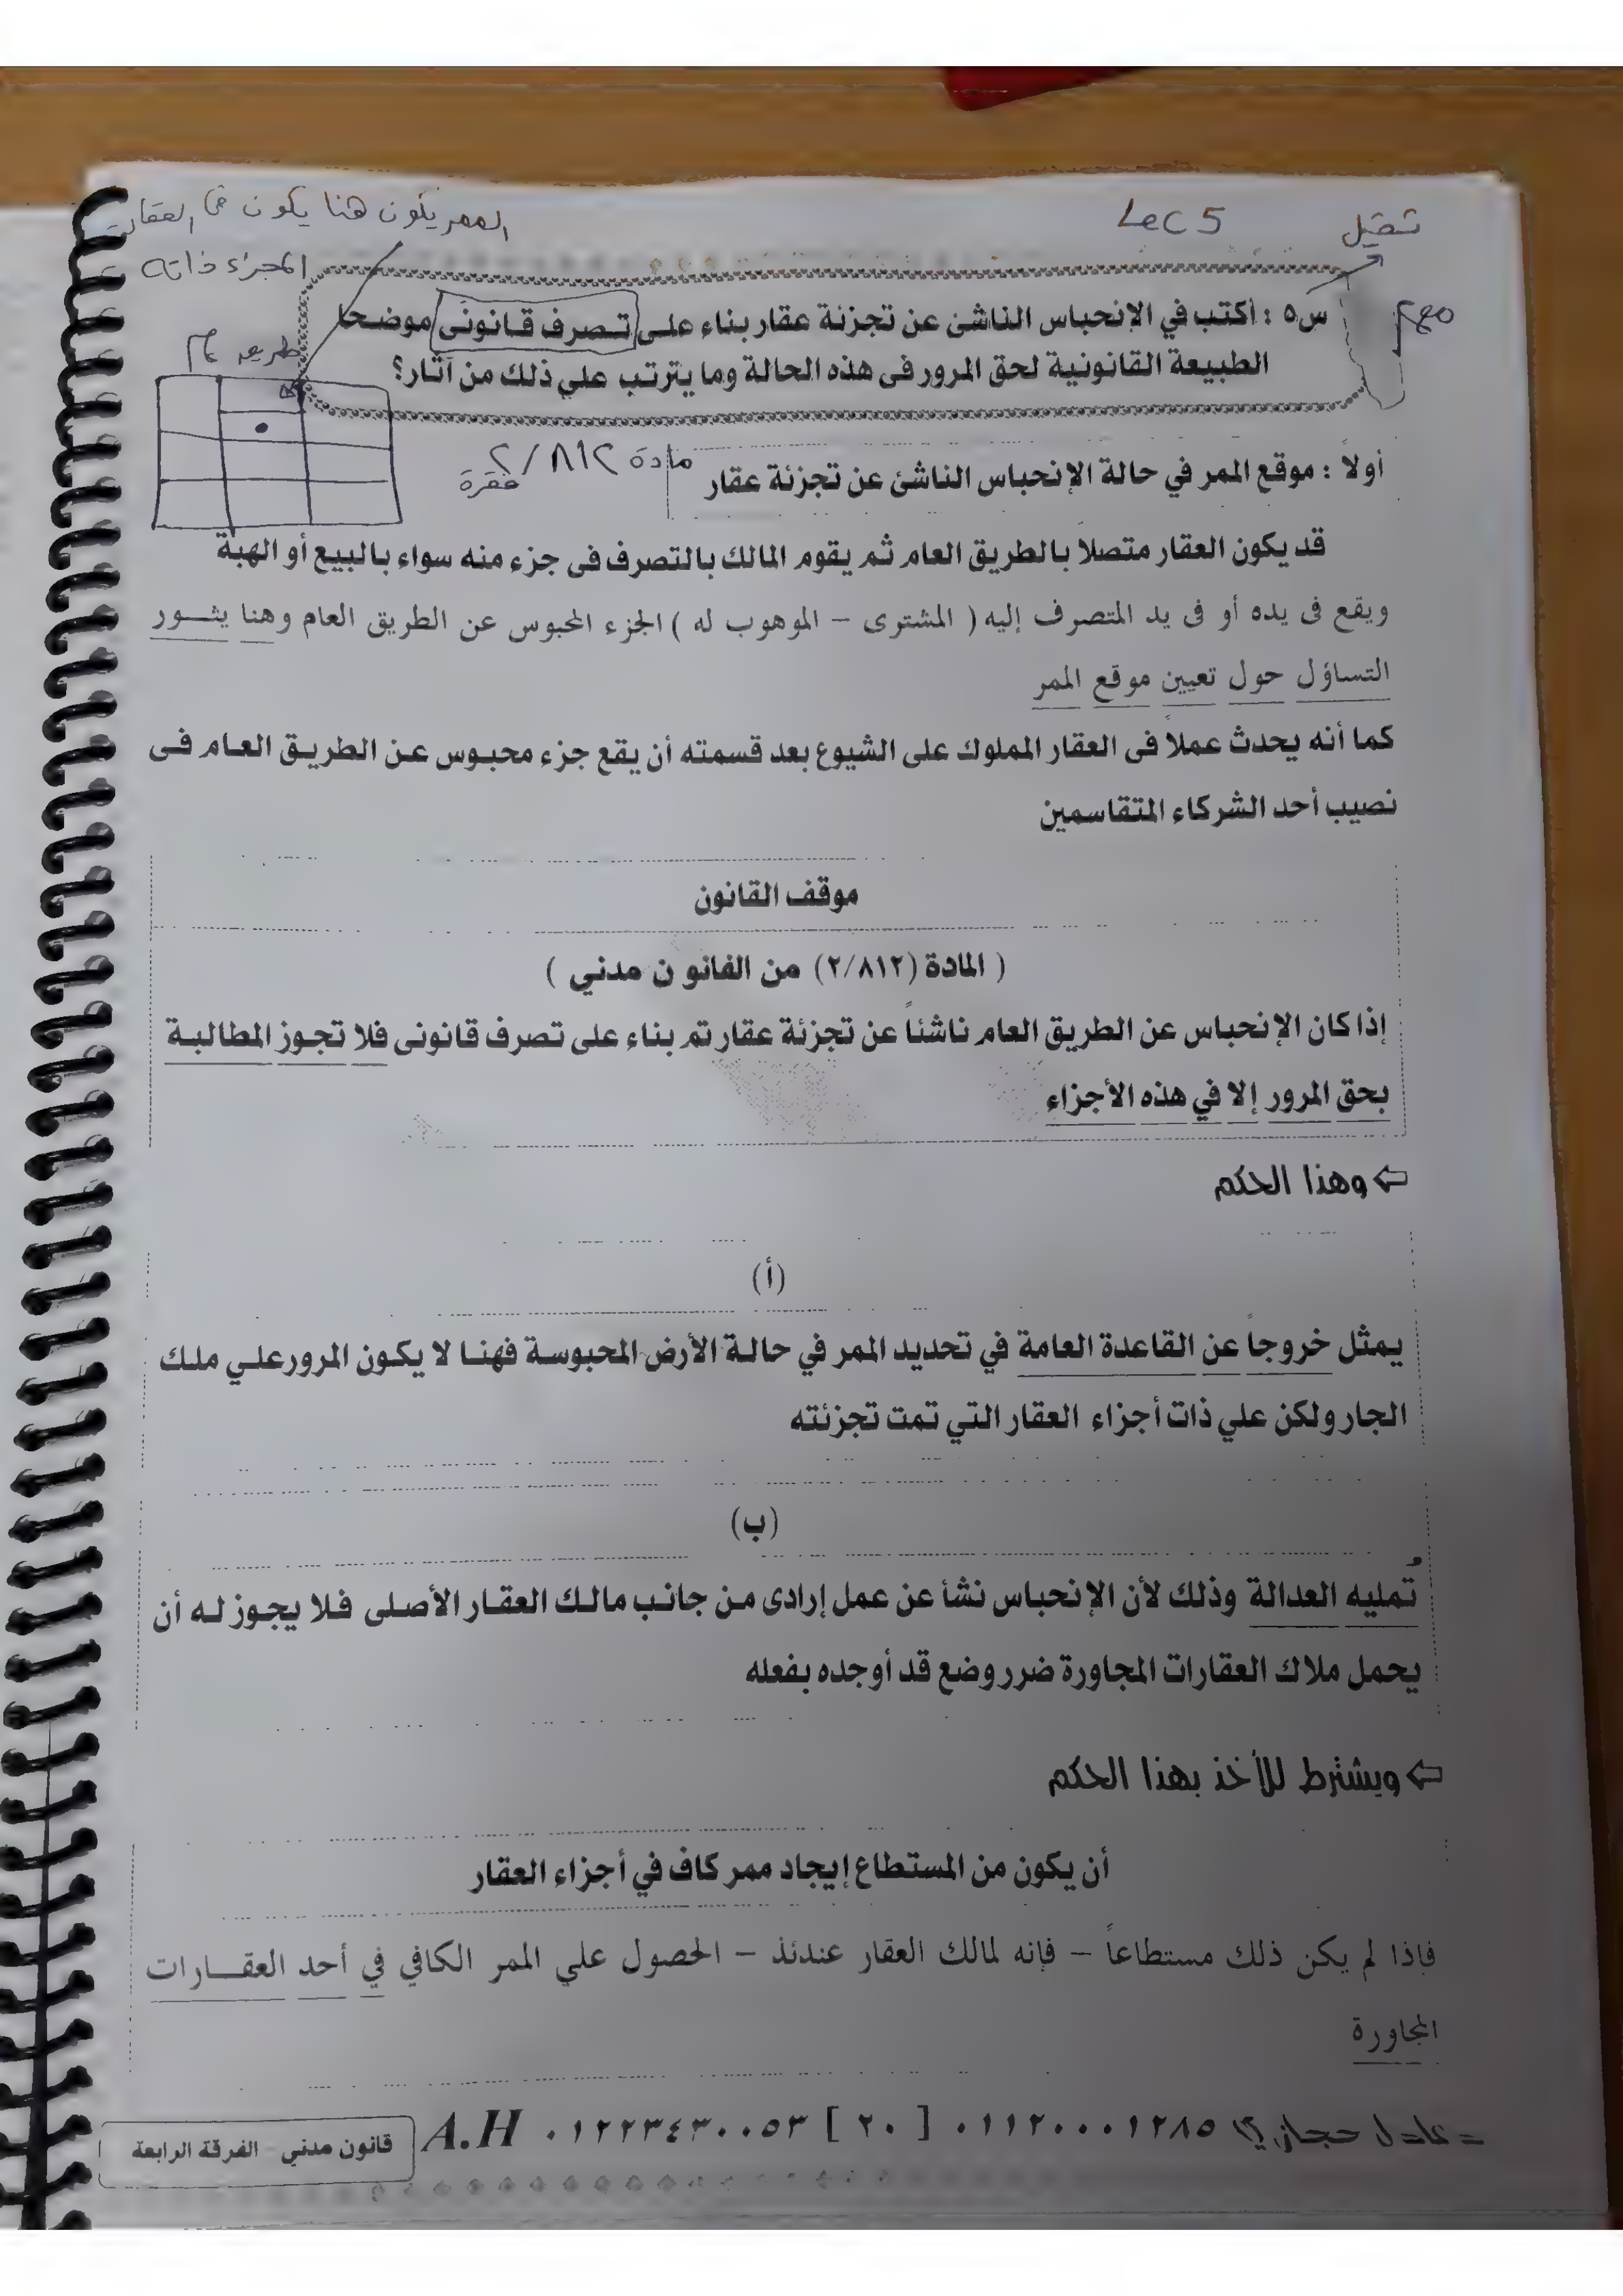 الممر يكون هنا يكون في العقار
المجزاء ذاته
Lec 5
تقيل
مهم
س٥ : أكتب في الإنحباس الناشئ عن تجزئة عقار بناء على تصرف قانونى موضحا
الطبيعة القانونية لحق المرور فى هذه الحالة وما يترتب علي ذلك من آثار؟
طريق عام
أولاً : موقع الممر في حالة الإنحباس الناشئ عن تجزئة عقار
مادة ٨١٢ / ٢
فقرة
قد يكون العقار متصلا بالطريق العام ثم يقوم المالك بالتصرف فى جزء منه سواء بالبيع أو الهبة
ويقع فى يده أو فى يد المتصرف إليه ( المشترى – الموهوب له ) الجزء المحبوس عن الطريق العام وهنا يثـور
التساؤل حول تعيين موقع الممر
كما أنه يحدث عملاً فى العقار المملوك على الشيوع بعد قسمته أن يقع جزء محبوس عن الطريق العام فى
نصيب أحد الشركاء المتقاسمين
موقف القانون
( المادة (٢/٨١٢) من القانو ن مدني )
إذا كان الإنحباس عن الطريق العام ناشئاً عن تجزئة عقار تم بناء على تصرف قانونى فلا تجوز المطالبة
بحق المرور إلا في هذه الأجزاء
وهذا الحكم
(أ)
يمثل خروجاً عن القاعدة العامة في تحديد الممر في حالة الأرض المحبوسة فهنا لا يكون المرور علي ملك
الجار ولكن علي ذات أجزاء العقار التي تمت تجزئته
(ب)
تُمليه العدالة وذلك لأن الإنحباس نشأ عن عمل إرادى من جانب مالك العقار الأصلى فلا يجوز له أن
يحمل ملاك العقارات المجاورة ضرر وضع قد أوجده بفعله
ويشترط للأخذ بهذا الحكم
أن يكون من المستطاع إيجاد ممر كاف في أجزاء العقار
فإذا لم يكن ذلك مستطاعاً – فإنه لمالك العقار عندئذ – الحصول علي الممر الكافي في أحد العقـارات
المجاورة
عادل حجازي ٠١١٢٠٠٠١٢٨٥ [ ٢٠ ] ٠١٢٢٣٤٣٠٠٥٣ A.H
قانون مدني - الفرقة الرابعة